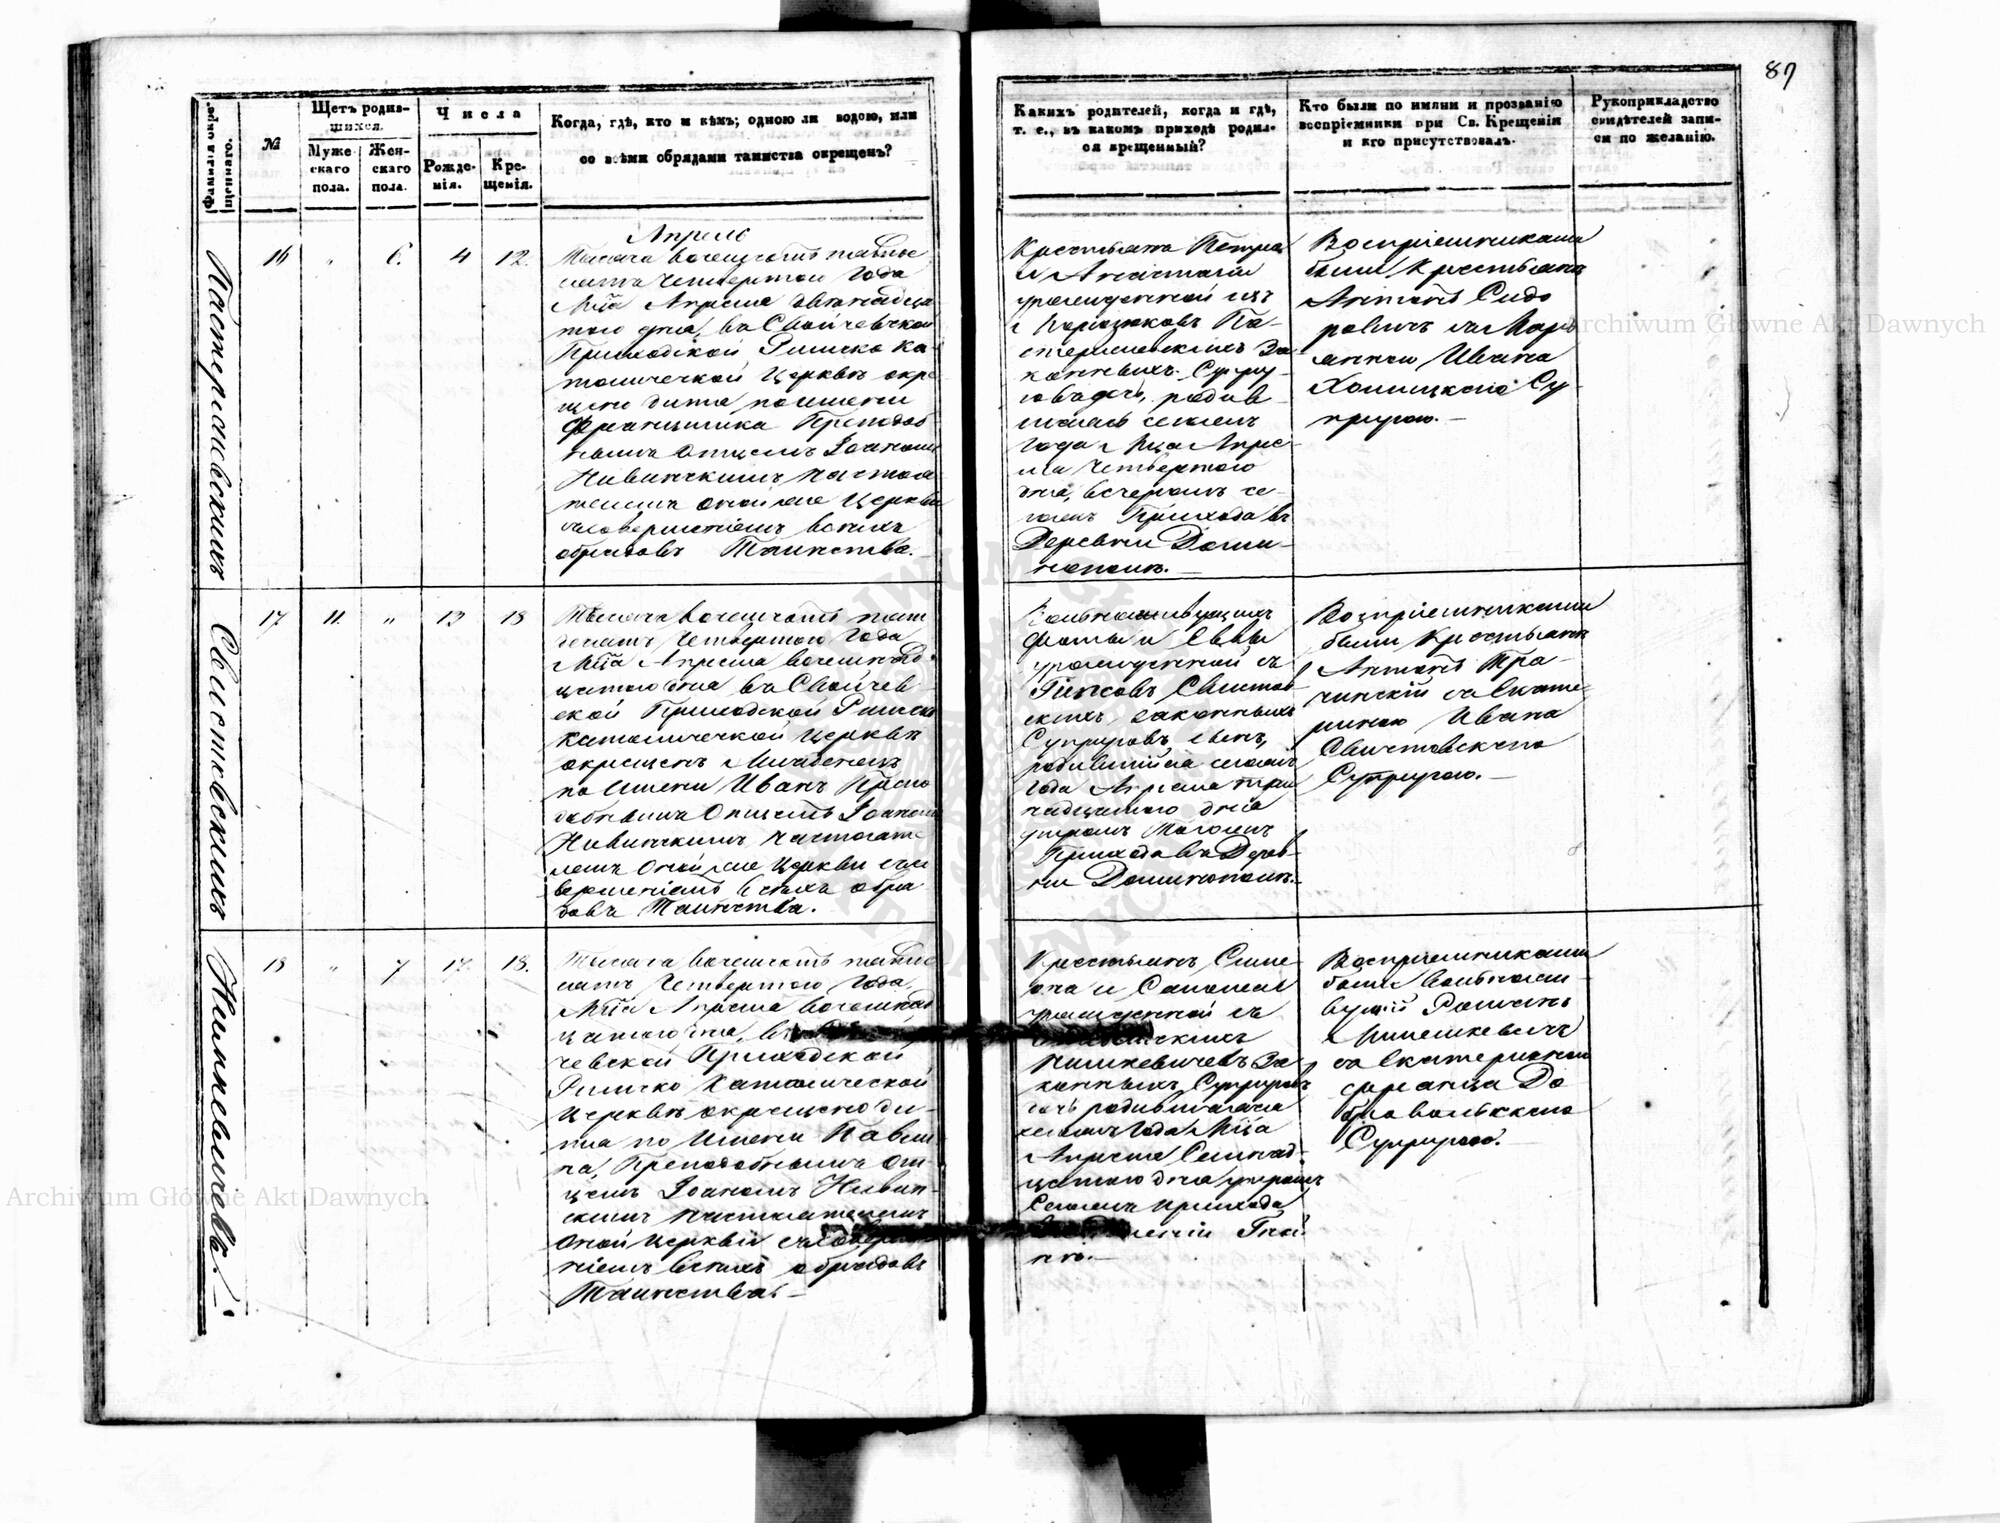 87
Фамилія окре-
щеннаго.
№
Щетъ родив-
шихся.
Муже-
скаго
пола.
Жен-
скаго
пола.
Числа
Рожде-
нія.
Кре-
щенія.
Когда, гдѣ, кто и кѣмъ; одною ли водою, или
со всѣми обрядами таинства окрещенъ?
Какихъ родителей, когда и гдѣ,
т. е., въ какомъ приходѣ родил-
ся крещенный?
Кто были по имяни и прозванію
воспріемники при Св. Крещеніи
и кто присутствовалъ.
Рукоприкладство
свидѣтелей запи-
си по желанію.
16
"
6.
4
12.
Апрель
Тысяча восемсотъ пятьде
сятъ Четвертого Года
Мца Апреля двенадца
того дня, въ Свойчевской
Приходской Римско Ка-
толической Церквѣ окре
щено дитя по имени
Францишка Преподоб
нымъ Отцемъ Іоанномъ
Настоя
телемъ оной же Церкви
съ совершеніемъ всехъ
обрядовъ Таинства.
Крестьянъ Петра
и Анастасіи
урожденной изъ
За
конныхъ Супру
говъ дочь, родив
шаяся сегожъ
Года Мца Апре
ля Четвертого
дня, вечеромъ се-
гожъ Прихода въ
Деревни Доми-
нополь.
Воспріемниками
были Крестьянъ
Антонъ Сидо
ровичъ съ Марь
янною Ивана
Хомицкого Су
пругою.
Свистовскихъ
17
11.
"
13
18
Тысяча восемсотъ пять
десятъ Четвертого Года
Мца Апреля восемнад
цатого дня въ Свойчев
ской Приходской Римско
Католической Церквѣ
окрещенъ Младенецъ
по Имени Иванъ Препо
добнымъ Отцемъ Іоанномъ
Настояте
лемъ оной же Церкви съ со
вершеніемъ всехъ обря
довъ Таинства.
Вольноживущихъ
Фомы и Евы
урожденной съ
Свистов
скихъ законныхъ
Супруговъ сынъ,
родившійся сегожъ
Года Апреля три
надцатого дня
утромъ тогожъ
Прихода въ Дерев-
ни Доминополь.
Воспріемниками
были Крестьянъ
Антонъ Тра-
чинскій съ Екате
риною Ивана
Свистовского
Супругою.
18
"
7
17.
18.
Тысяча восемсотъ пятьде
сятъ Четвертого Года
Мца Апреля восемнад
цатого дня,
чевской Приходской
Римско Католической
Церквѣ окрещено ди-
тя по Имени Павли
на, Преподобнымъ От-
цемъ Іоанномъ
Настоятелемъ
Оной Церкви съ совер
ніемъ всехъ обрядовъ
Таинства.
Крестьянъ Симе
она и Саломеи
урожденной съ
За
конныхъ Супруговъ
дочь родившаяся
сегожъ Года Мца
Апреля Семнад
цатого дня утромъ
Сегожъ прихода
Воспріемниками
были Вольножи
вущій Романъ
съ Екатериною
Франца До
бровольского
Супругою.
Archiwum Główne Akt Dawnych
Archiwum Główne Akt Dawnych